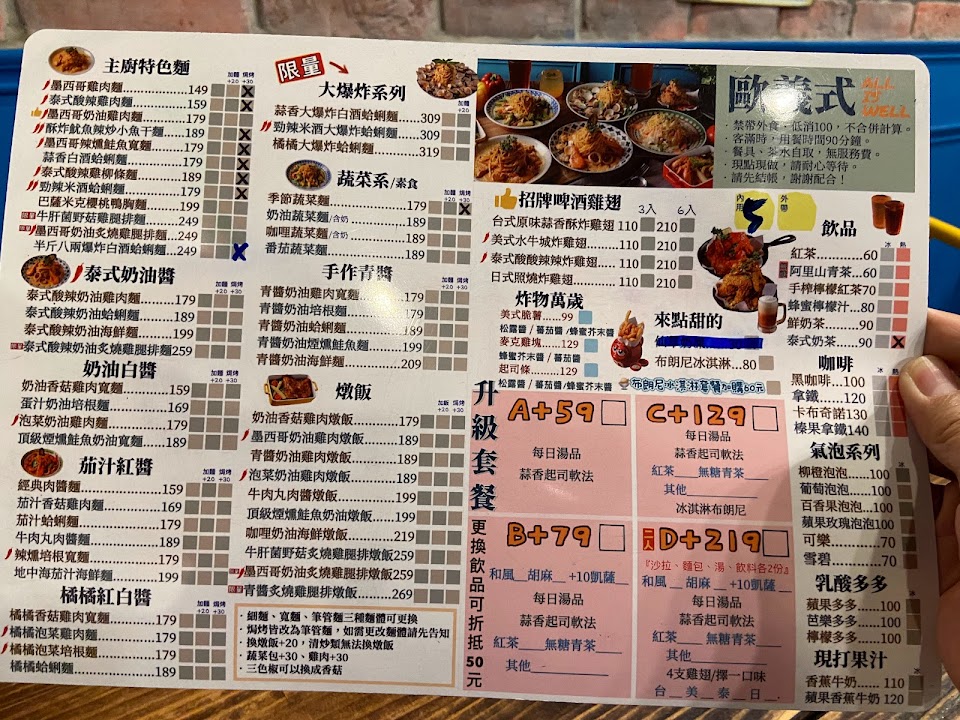 主廚特色麵
加麵 焗烤
+20 +30
墨西哥雞肉麵 149
泰式酸辣雞肉麵 159
墨西哥奶油雞肉麵 179
酥炸魷魚辣炒小魚干麵 189
墨西哥辣煙燻鮭魚寬麵 179
蒜香白酒蛤蜊麵 179
泰式酸辣雞柳條麵 189
勁辣米酒蛤蜊麵 179
巴薩米克櫻桃鴨胸麵 199
牛肝菌野菇雞腿排麵 249
墨西哥奶油炙燒雞腿排麵 249
半斤八兩爆炸白酒蛤蜊麵 249
泰式奶油醬
加麵 焗烤
+20 +30
泰式酸辣奶油雞肉麵 179
泰式酸辣奶油蛤蜊麵 189
泰式酸辣奶油海鮮麵 199
泰式酸辣奶油炙燒雞腿排麵259
奶油白醬
加麵 焗烤
+20 +30
奶油香菇雞肉寬麵 179
蛋汁奶油培根麵 169
泡菜奶油雞肉麵 179
頂級煙燻鮭魚奶油寬麵 189
茄汁紅醬
加麵 焗烤
+20 +30
經典肉醬麵 159
茄汁香菇雞肉麵 169
茄汁蛤蜊麵 179
牛肉丸肉醬麵 189
辣燻培根寬麵 179
地中海茄汁海鮮麵 199
橘橘紅白醬
加麵 焗烤
+20 +30
橘橘香菇雞肉寬麵 179
橘橘泡菜雞肉麵 179
橘橘泡菜培根麵 179
橘橘蛤蜊麵 189
限量
大爆炸系列
加麵
+20
蒜香大爆炸白酒蛤蜊麵 309
勁辣米酒大爆炸蛤蜊麵 309
橘橘大爆炸蛤蜊麵 319
蔬菜系/素食
加麵 焗烤
+20 +30
季節蔬菜麵 189
奶油蔬菜麵/含奶 189
咖哩蔬菜麵/含奶 189
番茄蔬菜麵 189
手作青醬
加麵 焗烤
+20 +30
青醬奶油雞肉寬麵 179
青醬奶油培根麵 179
青醬奶油蛤蜊麵 189
青醬奶油煙燻鮭魚麵 199
青醬奶油海鮮麵 209
燉飯
加飯 焗烤
+20 +30
奶油香菇雞肉燉飯 179
墨西哥奶油雞肉燉飯 189
青醬奶油雞肉燉飯 189
泡菜奶油雞肉燉飯 189
牛肉丸肉醬燉飯 199
頂級煙燻鮭魚奶油燉飯 199
咖哩奶油海鮮燉飯 219
牛肝菌野菇炙燒雞腿排燉飯259
墨西哥奶油炙燒雞腿排燉飯259
青醬炙燒雞腿排燉飯 269
．細麵、寬麵、筆管麵三種麵體可更換
．焗烤皆改為筆管麵，如需更改麵體請先告知
．換燉飯+20，清炒類無法換燉飯
．蔬菜包+30、雞肉+30
．三色椒可以換成香菇
歐義式
ALL IS WELL
．禁帶外食，低消100，不合併計算。
．客滿時，用餐時間90分鐘。
．餐具、茶水自取，無服務費。
．現點現做，請耐心等待。
．請先結帳，謝謝配合！
招牌啤酒雞翅
3入 6入
台式原味蒜香酥炸雞翅 110 210
美式水牛城炸雞翅 110 210
泰式酸酸辣辣炸雞翅 110 210
日式照燒炸雞翅 110 210
炸物萬歲
美式脆薯 99
松露醬 / 蕃茄醬 /蜂蜜芥末醬
麥克雞塊 129
蜂蜜芥末醬 / 蕃茄醬
起司條 129
松露醬 / 蕃茄醬 / 蜂蜜芥末醬
來點甜的
布朗尼冰淇淋 80
布朗尼冰淇淋套餐加購60元
升級套餐
更換飲品可折抵50元
A+59
每日湯品
蒜香起司軟法
C+129
每日湯品
蒜香起司軟法
紅茶 無糖青茶
其他
冰淇淋布朗尼
B+79
和風 胡麻 +10凱薩
每日湯品
蒜香起司軟法
紅茶 無糖青茶
其他
二人 D+219
『沙拉、麵包、湯、飲料各2份』
和風 胡麻 +10凱薩
每日湯品
蒜香起司軟法
紅茶 無糖青茶
其他
4支雞翅/擇一口味
台 美 泰 日
內用 5 外帶
飲品
冰 熱
紅茶 60
阿里山青茶 60
手榨檸檬紅茶70
蜂蜜檸檬汁 80
鮮奶茶 90
泰式奶茶 90
咖啡
冰 熱
黑咖啡 100
拿鐵 120
卡布奇諾130
榛果拿鐵140
氣泡系列
冰
柳橙泡泡 100
葡萄泡泡 100
百香果泡泡 100
蘋果玫瑰泡泡100
可樂 70
雪碧 70
乳酸多多
冰
蘋果多多 100
芭樂多多 100
檸檬多多 100
現打果汁
冰
香蕉牛奶 110
蘋果香蕉牛奶 120